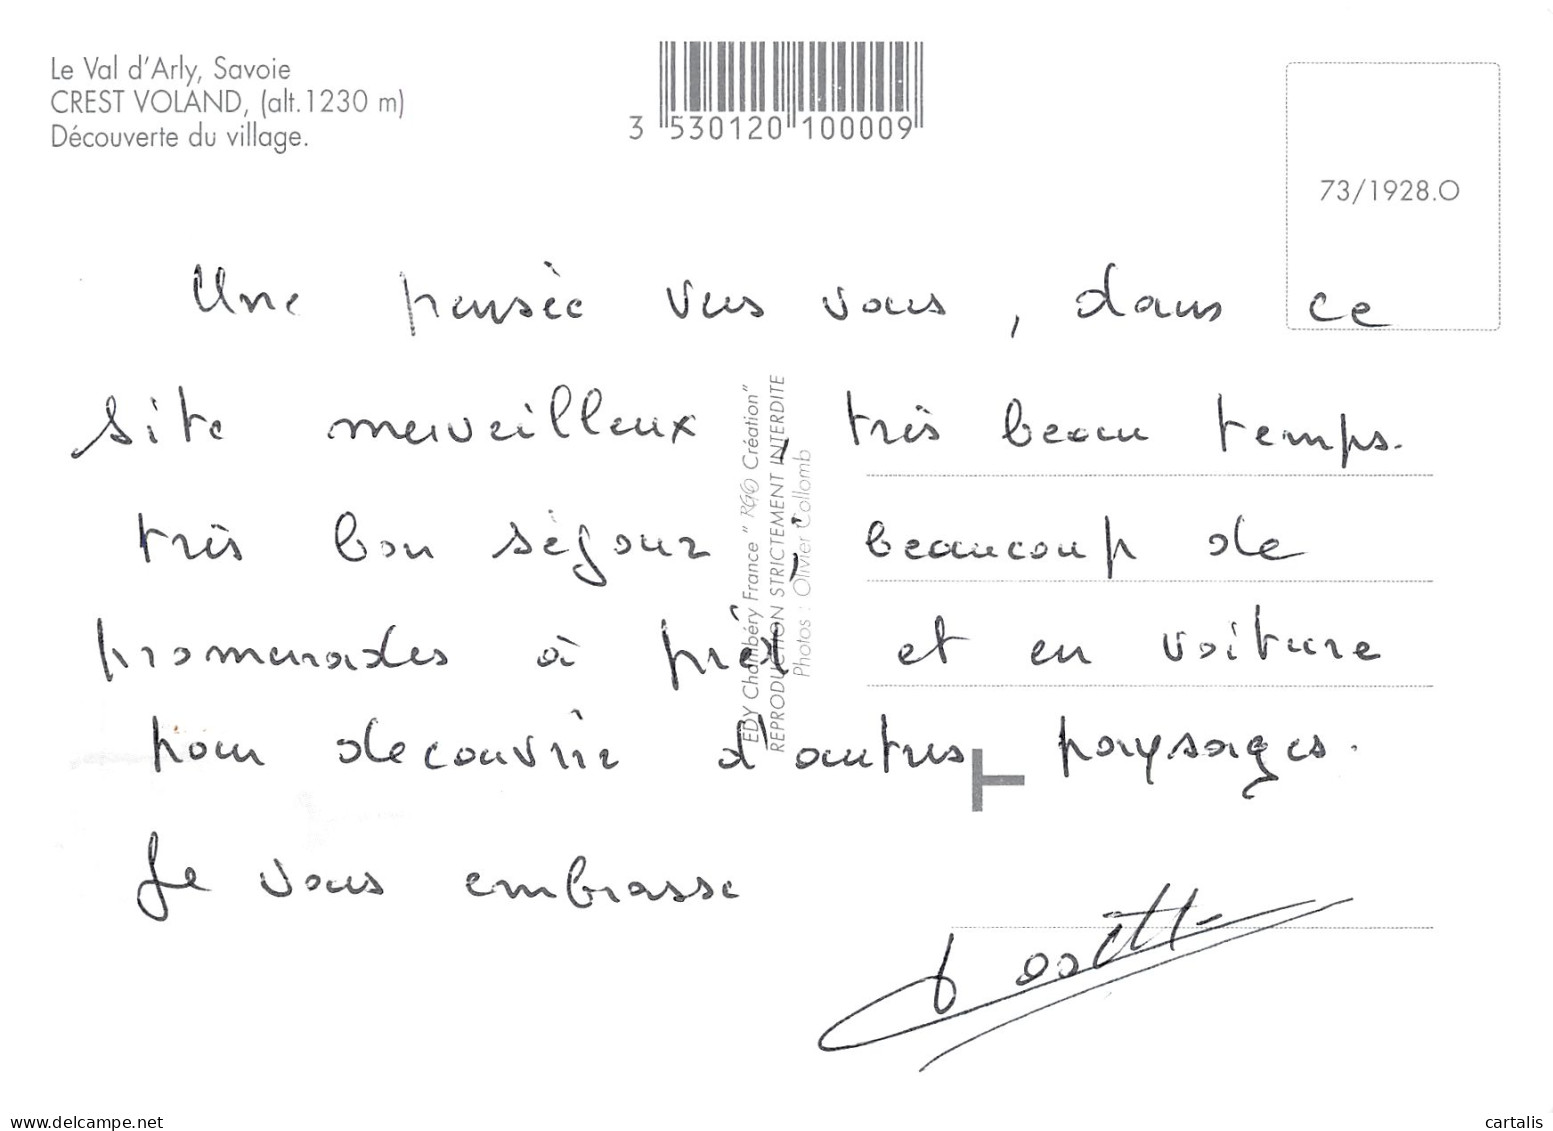 Le Val d'Arly, Savoie
CREST VOLAND, (alt.1230 m)
Découverte du village.
3 530120 100009
73/1928.O
Une pensée vers vous, dans ce
site merveilleux, très beau temps.
très bon séjour, beaucoup de
promenades à pied et en voiture
pour decouvrir d'autres paysages.
Je vous embrasse
EDY Chambéry France " RGO Création"
REPRODUCTION STRICTEMENT INTERDITE
Photos : Olivier Collomb
www.delcampe.net
cartalis